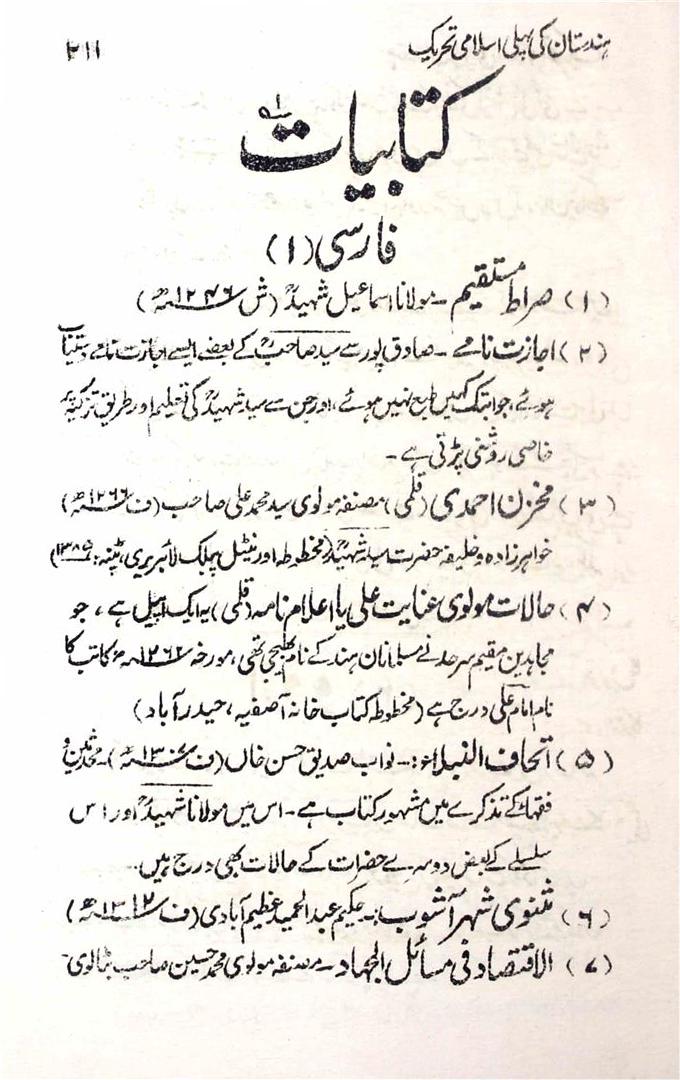 ہندستان کی پہلی اسلامی تحریک ۲۱۱
کتابیات ؂۱
فارسی (۱)
(۱) صراط مستقیم - مولانا اسماعیل شہیدؒ (ش ۱۲۴۶ھ)
(۲) اجازت نامے - صادق پور سے سید صاحبؒ کے بعض ایسے اجازت نامے دستیاب
ہوئے، جو ابتک کہیں طبع نہیں ہوئے، اور جن سے سید شہیدؒ کی تعلیم اور طریق تزکیہ پر
خاصی روشنی پڑتی ہے -
(۳) مخزن احمدی (قلمی) مصنفہ مولوی سید محمد علی صاحب (ف ۱۲۶۶ھ)
خواہر زادہ و خلیفہ حضرت سید شہیدؒ (مخطوطہ اورنیٹل پبلک لائبریری، پٹنہ:
(۴) حالات مولوی عنایت علی یا اعلام نامہ (قلمی) یہ ایک اپیل ہے، جو
مجاہدین مقیم سرحد نے مسلمانان ہند کے نام بھیجی تھی، مورخہ ۱۲۶۲ھ، کاتب کا
نام امام علی درج ہے (مخطوطہ کتاب خانہ آصفیہ، حیدر آباد)
(۵) اتحاف النبلاء :- نواب صدیق حسن خاں (ف ۱۳۰۷ھ) - محدثین و
فقہاء کے تذکرے میں مشہور کتاب ہے - اس میں مولانا شہیدؒ اور اس
سلسلے کے بعض دوسرے حضرات کے حالات بھی درج ہیں -
(۶) مثنوی شہر آشوب :- حکیم عبدالحمید عظیم آبادی (ف ۱۳۱۲ھ)
(۷) الاقتصاد فی مسائل الجہاد - مصنفہ مولوی محمد حسین صاحب بٹالوی -